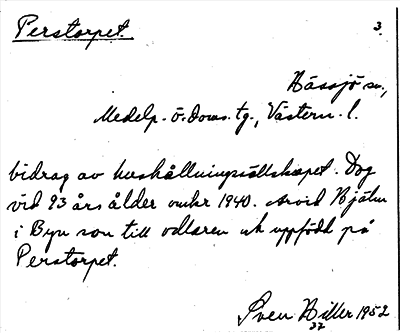 Perstorpet. 3
Hässjö sn.,
Medelp. ö. doms. tg., Västern. l.
bidrag av hushållningssällskapet. Dog
vid 93 års ålder omkr 1940. Arvid Hjälm
i Byn son till odlaren och uppfödd på
Perstorpet.
Sven Hiller 1952